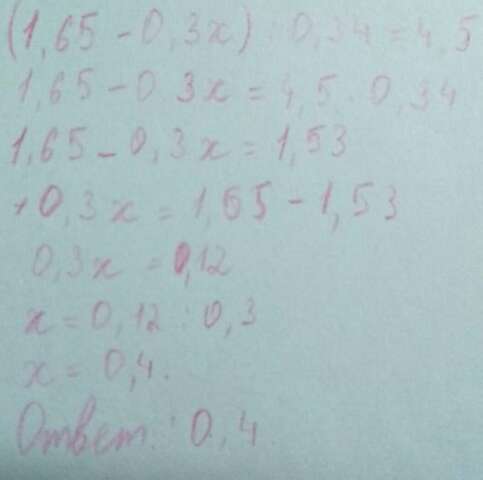 (1,65 - 0,3x) : 0,34 = 4,5
1,65 - 0,3x = 4,5 · 0,34
1,65 - 0,3x = 1,53
+0,3x = 1,65 - 1,53
0,3x = 0,12
x = 0,12 : 0,3
x = 0,4.
Ответ: 0,4.